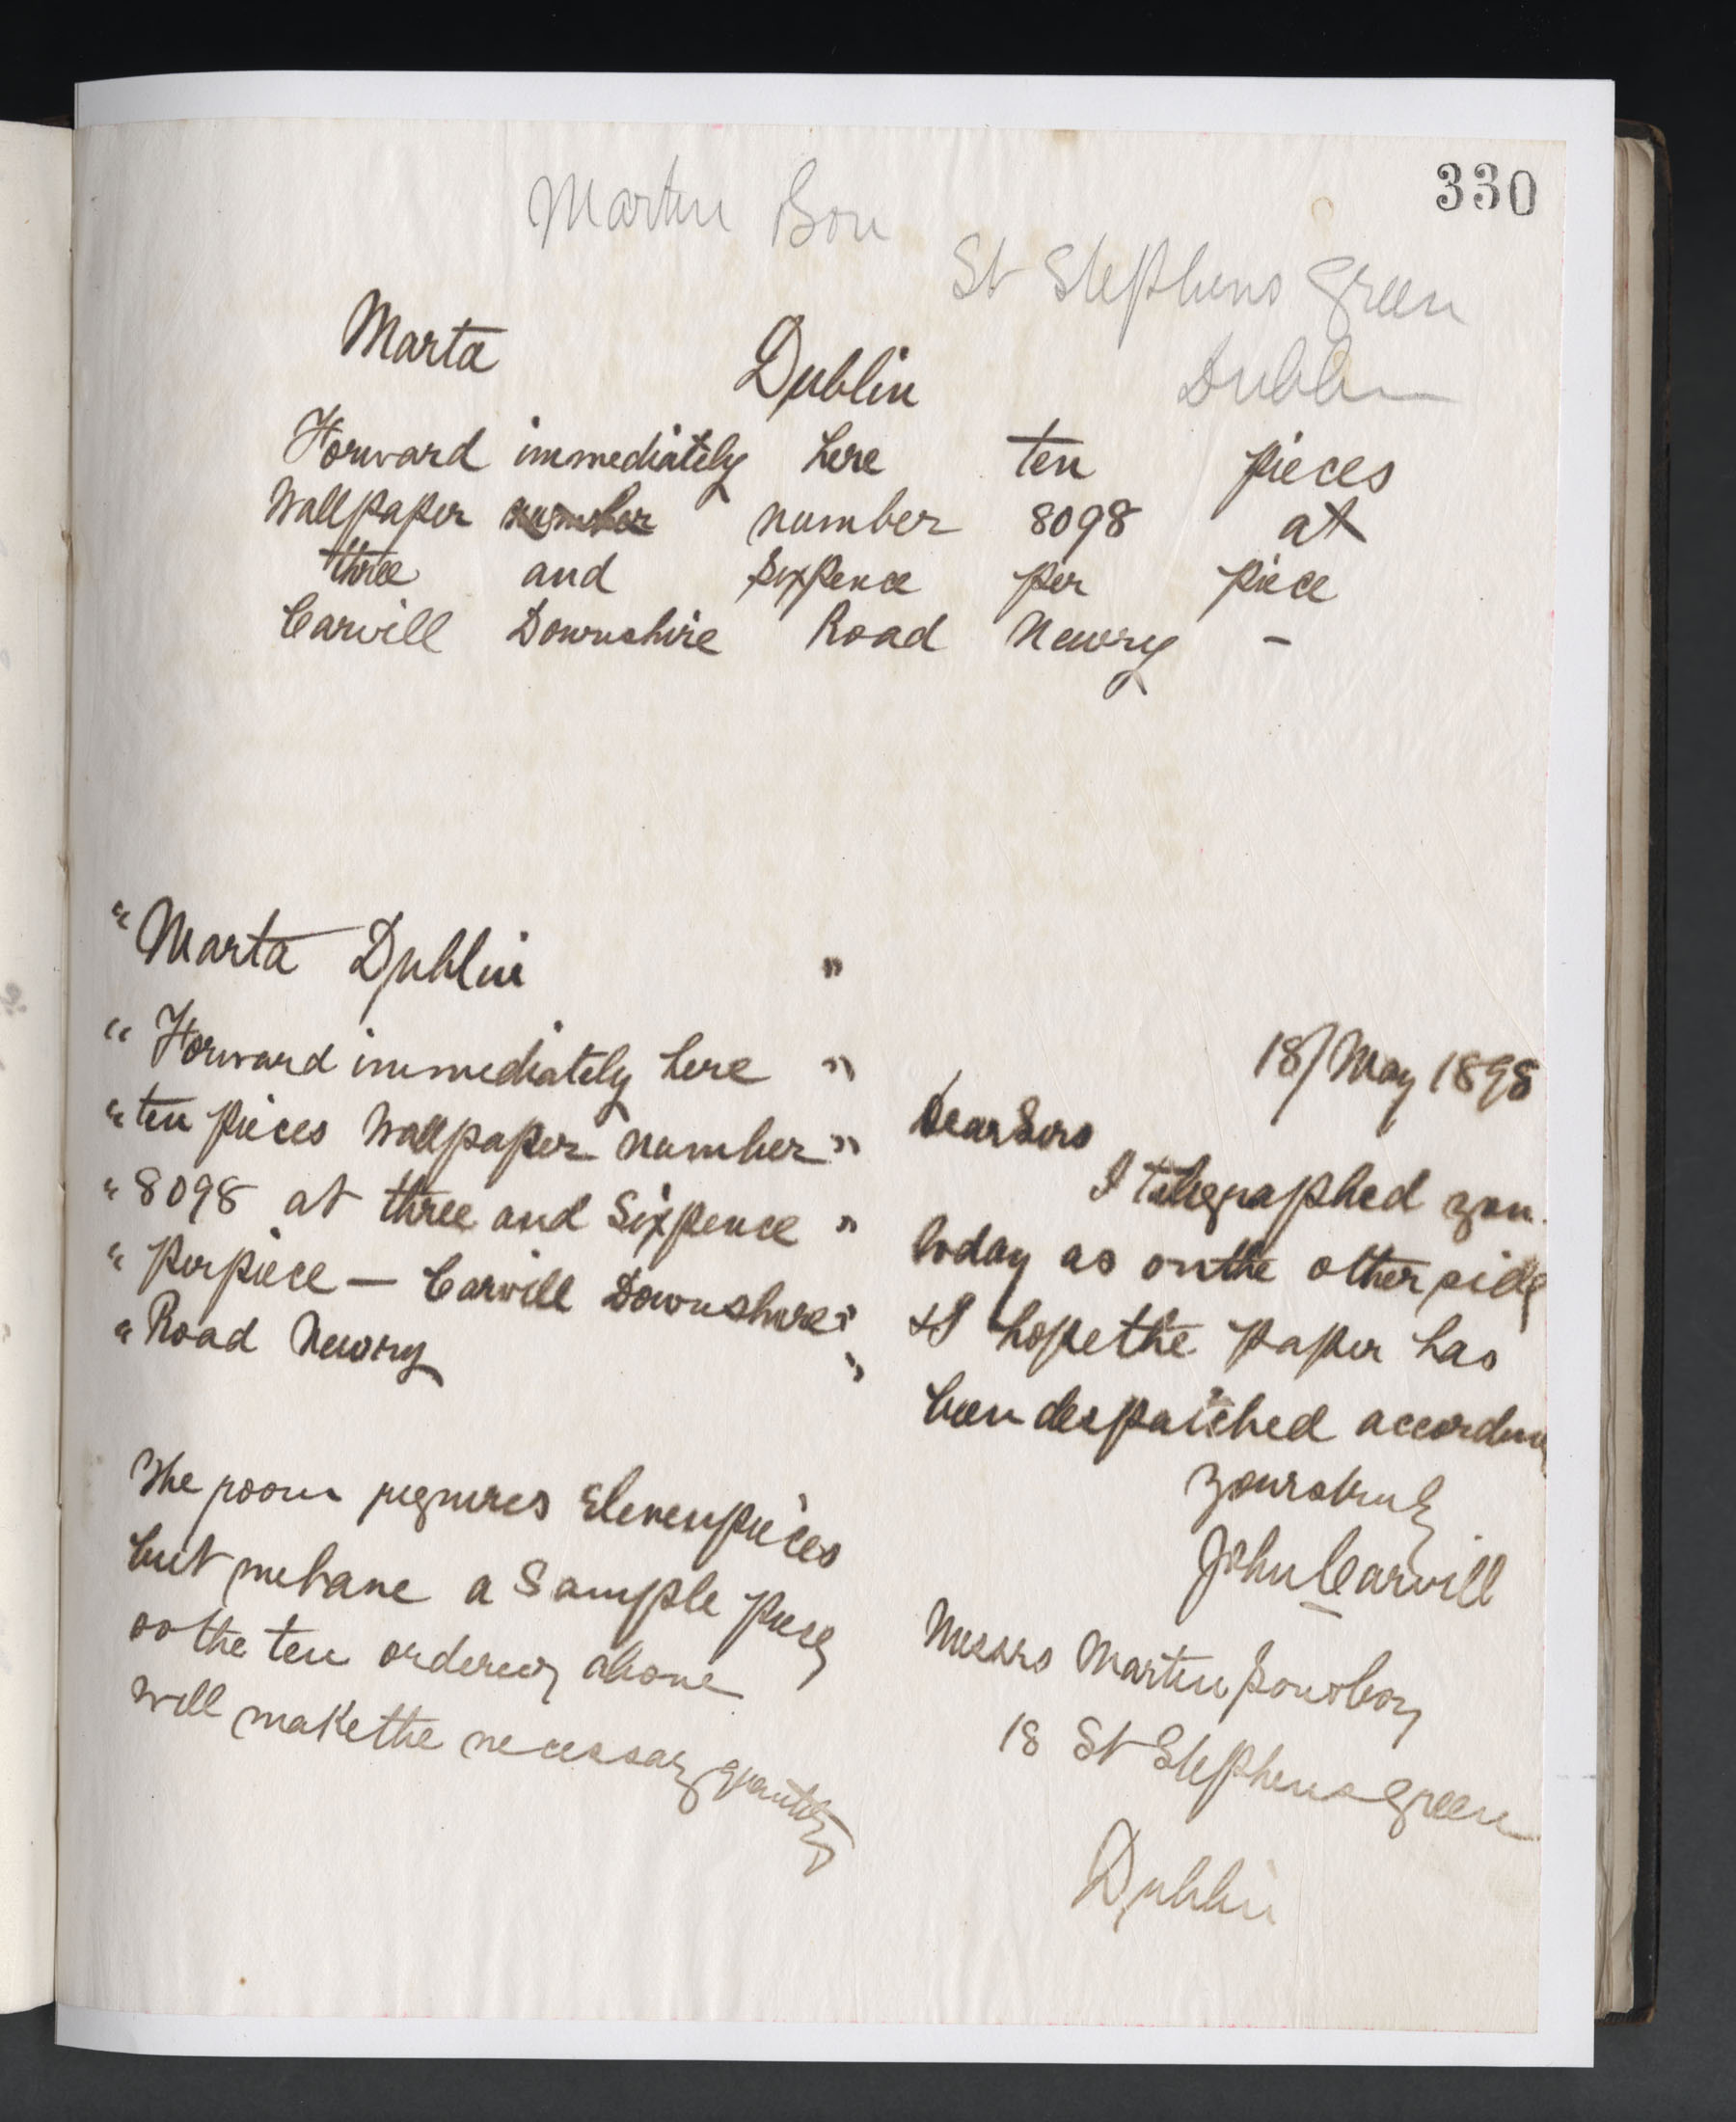 330
Martin Son
St Stephens Green
Dublin
Marta Dublin
Forward immediately here ten pieces
Wallpaper number number 8098 at
three and Sixpence per piece
Carvill Downshire Road Newry -
"Marta Dublin "
"Forward immediately here "
"ten pieces Wallpaper number"
"8098 at three and Sixpence "
"per piece — Carvill Downshire"
"Road Newry "
The room requires Eleven pieces
but we have a Sample piece
so the ten ordered above
will make the necessary quantity
18/May 1898
Dear Sirs
I telegraphed you
today as on the other side
& I hope the paper has
been despatched according
Yours truly
John Carvill
Messrs Martin Son & Coy
18 St Stephens Green
Dublin